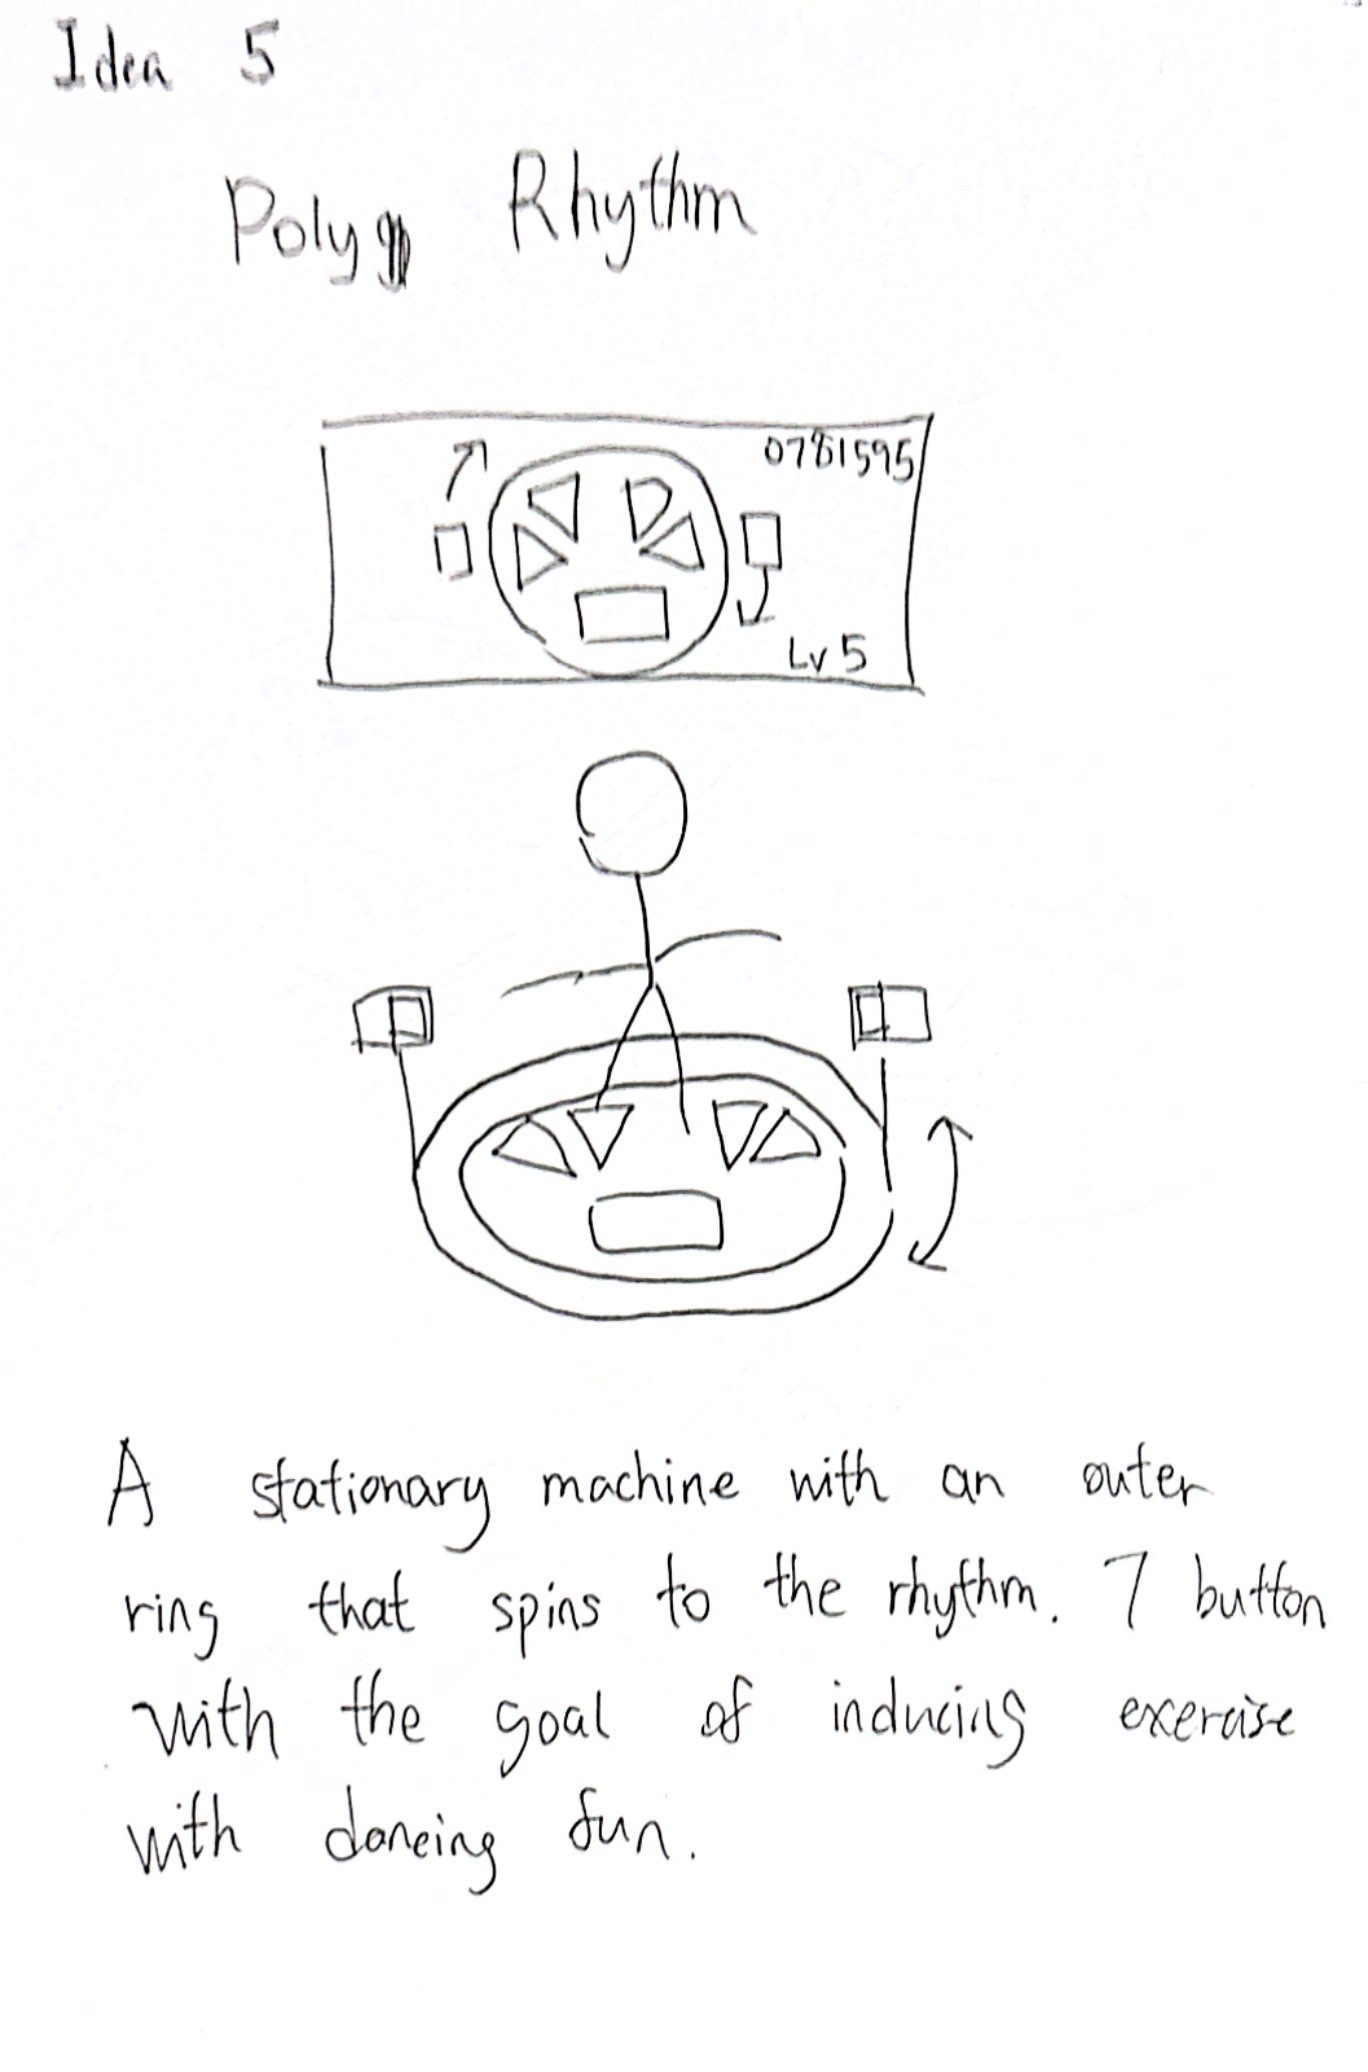 Idea 5
Poly Rhythm
0781595
Lv 5
A stationary machine with an outer
ring that spins to the rhythm. 7 button
with the goal of inducing exercise
with dancing fun.